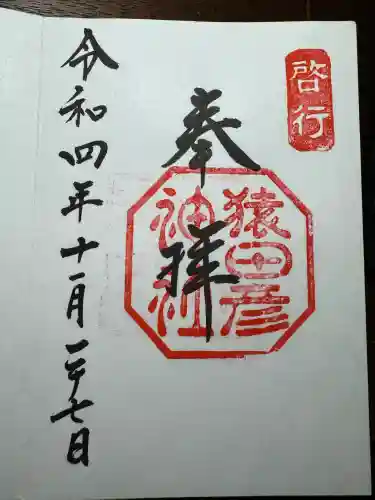 啓行
奉拝
猿田彦
神社
令和四年十一月二十七日